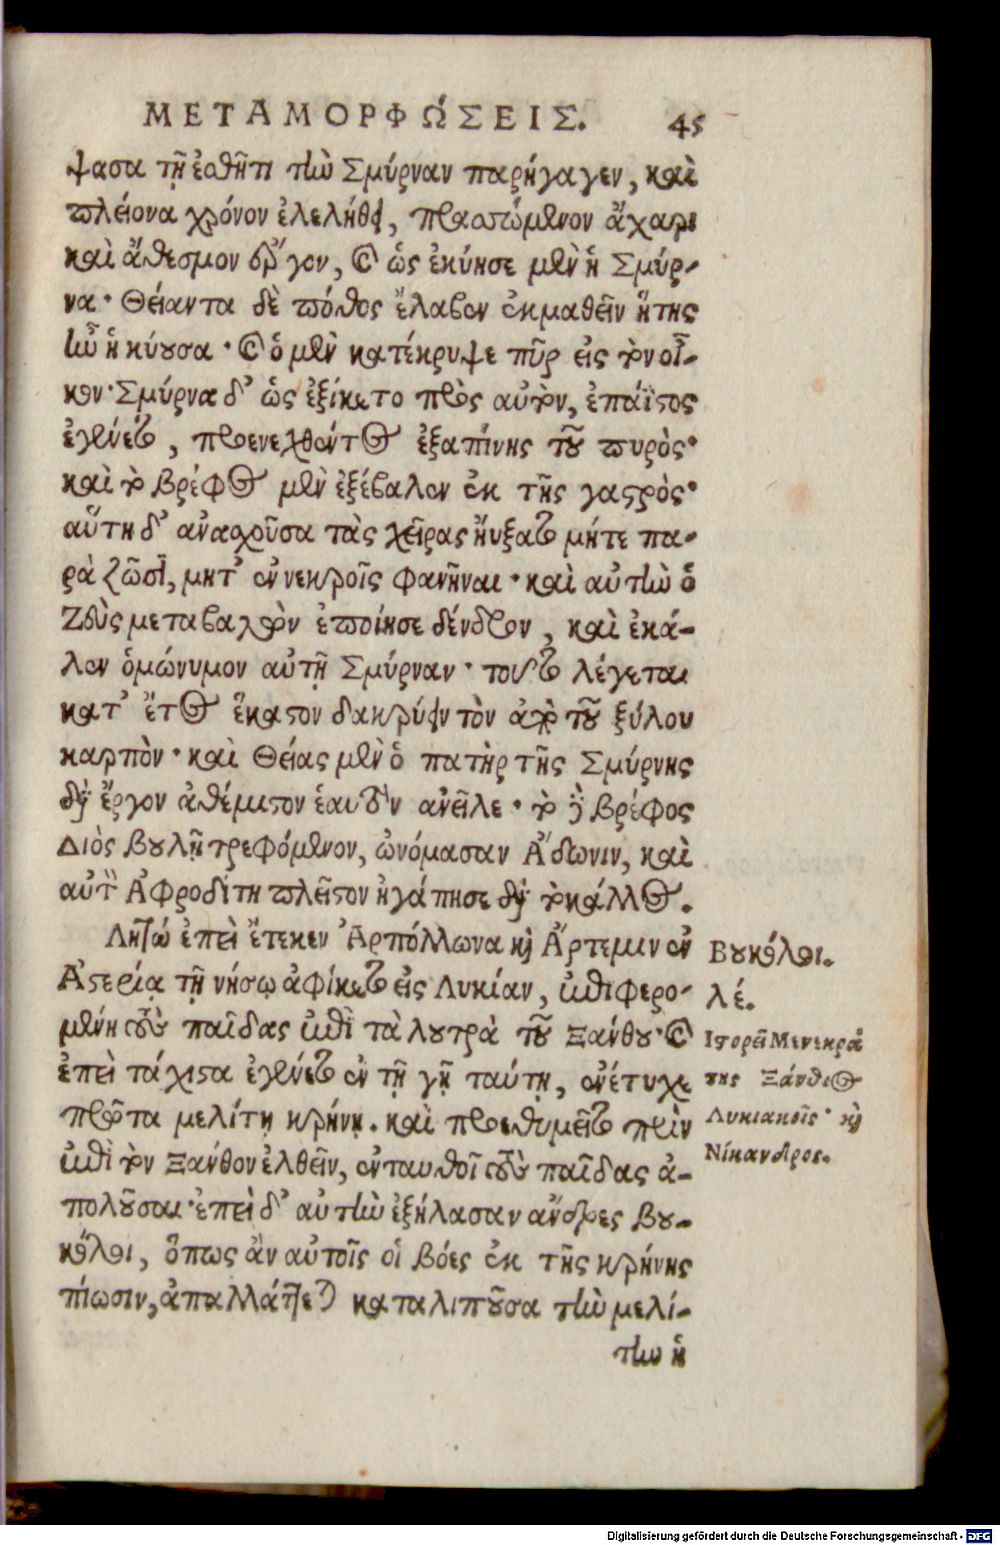 ΜΕΤΑΜΟΡΦΏΣΕΙΣ. 45
ψασα τῇ ἐσθῆτι τὴν Σμύρναν παρήγαγεν, καὶ
πλείονα χρόνον ἐλελήθει, πρασσόμενον ἄχαρι
καὶ ἄθεσμον ἔργον, καὶ ὡς ἐκύησε μὲν ἡ Σμύρ-
να· Θείαντα δὲ πόθος ἔλαβεν ἐκμαθεῖν ἥτης
ἦν ἡ κύουσα· καὶ ὁ μὲν κατέκρυψε πῦρ εἰς τὸν οἶ-
κον· Σμύρνα δ' ὡς ἐξίκετο πρὸς αὐτὸν, ἐπάϊστος
ἐγένετο, προενεχθέντος ἐξαπίνης τοῦ πυρὸς·
καὶ τὸ βρέφος μὲν ἐξέβαλεν ἐκ τῆς γαστρὸς·
αὕτη δ' ἀνασχοῦσα τὰς χεῖρας ἤυξατο μήτε πα-
ρὰ ζῶσι, μητ' ἐν νεκροῖς φανῆναι· καὶ αὐτὴν ὁ
Ζεὺς μεταβαλὼν ἐποίησε δένδρον, καὶ ἐκά-
λεν ὁμώνυμον αὐτῇ Σμύρναν· τοῦτο λέγεται
κατ' ἔτος ἕκαστον δακρύειν τὸν ἀπὸ τοῦ ξύλου
καρπὸν· καὶ Θείας μὲν ὁ πατὴρ τῆς Σμύρνης
διὰ ἔργον ἀθέμιστον ἑαυτὸν ἀνεῖλε· τὸ δὲ βρέφος
Διὸς βουλῇ τρεφόμενον, ὠνόμασαν Ἄδωνιν, καὶ
αὐτὸν Ἀφροδίτη πλεῖστον ἠγάπησε διὰ τὸ κάλλος.
Λητὼ ἐπεὶ ἔτεκεν Ἀρπόλλωνα καὶ Ἄρτεμιν ἐν
Ἀστερίᾳ τῇ νήσῳ ἀφίκετο εἰς Λυκίαν, ἐπιφερο-
μένη τοὺς παῖδας ἐπὶ τὰ λουτρὰ τοῦ Ξάνθου· καὶ
ἐπεὶ τάχιστα ἐγένετο ἐν τῇ γῇ ταύτῃ, ἐνέτυχε
πρῶτα μελίτῃ κρήνῃ. καὶ προεθυμεῖτο πρὶν
ἐπὶ τὸν Ξάνθον ἐλθεῖν, ἐνταυθοῖ τοὺς παῖδας ἀ-
πολοῦσαι· ἐπεὶ δ' αὐτὴν ἐξήλασαν ἄνδρες βου-
κόλοι, ὅπως ἂν αὐτοῖς οἱ βόες ἐκ τῆς κρήνης
πίωσιν, ἀπαλλάττεται καταλιποῦσα τὴν μελί-
την ἡ
Βουκόλοι.
λέ.
Ἱστορεῖ Μενεκρά
της Ξάνθιος
Λυκιακοῖς· καὶ
Νίκανδρος.
Digitalisierung gefördert durch die Deutsche Forschungsgemeinschaft - DFG